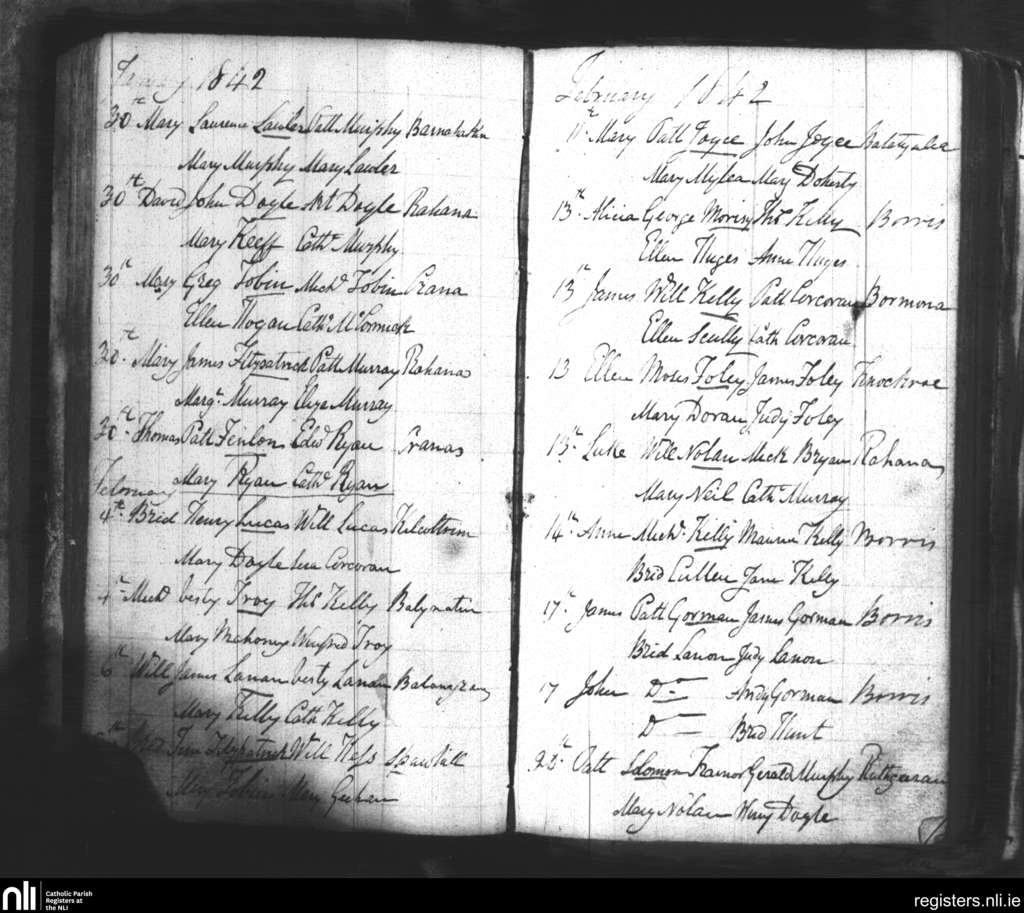 1842
30th Mary Laurence Lawler Patt Murphy Barnahaskin
Mary Murphy Mary Lawler
30th David John Doyle Art Doyle Rahana
Mary Keeff Cathe Murphy
30th Mary Greg Tobin Michd Tobin Crana
Ellen Hogan Cathe McCormick
30th Mary James Fitzpatrick Patt Murray Rahana
Margt Murray Eliza Murray
30th Thomas Patt Fenlon Edwd Ryan Cranas
Mary Ryan Cathe Ryan
February
4th Brid Henry Lucas Will Lucas Kilcoltrim
Mary Doyle Corcoran
Michd Troy Ths Kelly Balynatin
Mary Mahony Winifred Troy
6th Will James Lanan Lanan
Mary Kelly Cath Kelly
Fitzpatrick Will Hess
Mary Tobin Mary
February 1842
11th Mary Patt Joyce John Joyce
Mary Mylea Mary Doherty
13th Alicia George Morisy Ths Kelly Borris
Ellen Huges Anne Huges
13th James Will Kelly Patt Corcoran Bormona
Ellen Scully Cath Corcoran
13 Ellen Moses Foley James Foley Knockroe
Mary Doran Judy Foley
13th Luke Will Nolan Mick Bryan Rahana
Mary Neil Cath Murray
14th Anne Michd Kelly Maurice Kelly Borris
Brid Cullen Jane Kelly
17th James Patt Gorman James Gorman Borris
Brid Lanon Judy Lanon
17 John Do Andy Gorman Borris
Do Brid Hunt
Patt Solomon Trainor Gerald Murphy Rathgeran
Mary Nolan Winy Doyle
nli
Catholic Parish
Registers at
the NLI
registers.nli.ie